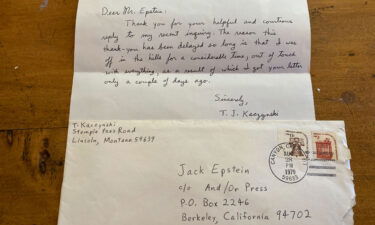 Dear Mr. Epstein:
Thank you for your helpful and courteous
reply to my recent inquiry. The reason this
thank-you has been delayed so long is that I was
off in the hills for a considerable time, out of touch
with everything, as a result of which I got your letter
only a couple of days ago.
Sincerely,
T. J. Kaczynski
T. Kaczynski
Stemple Pass Road
Lincoln, Montana 59639
Jack Epstein
c/o And/Or Press
P.O. Box 2246
Berkeley, California 94702
PM
1979